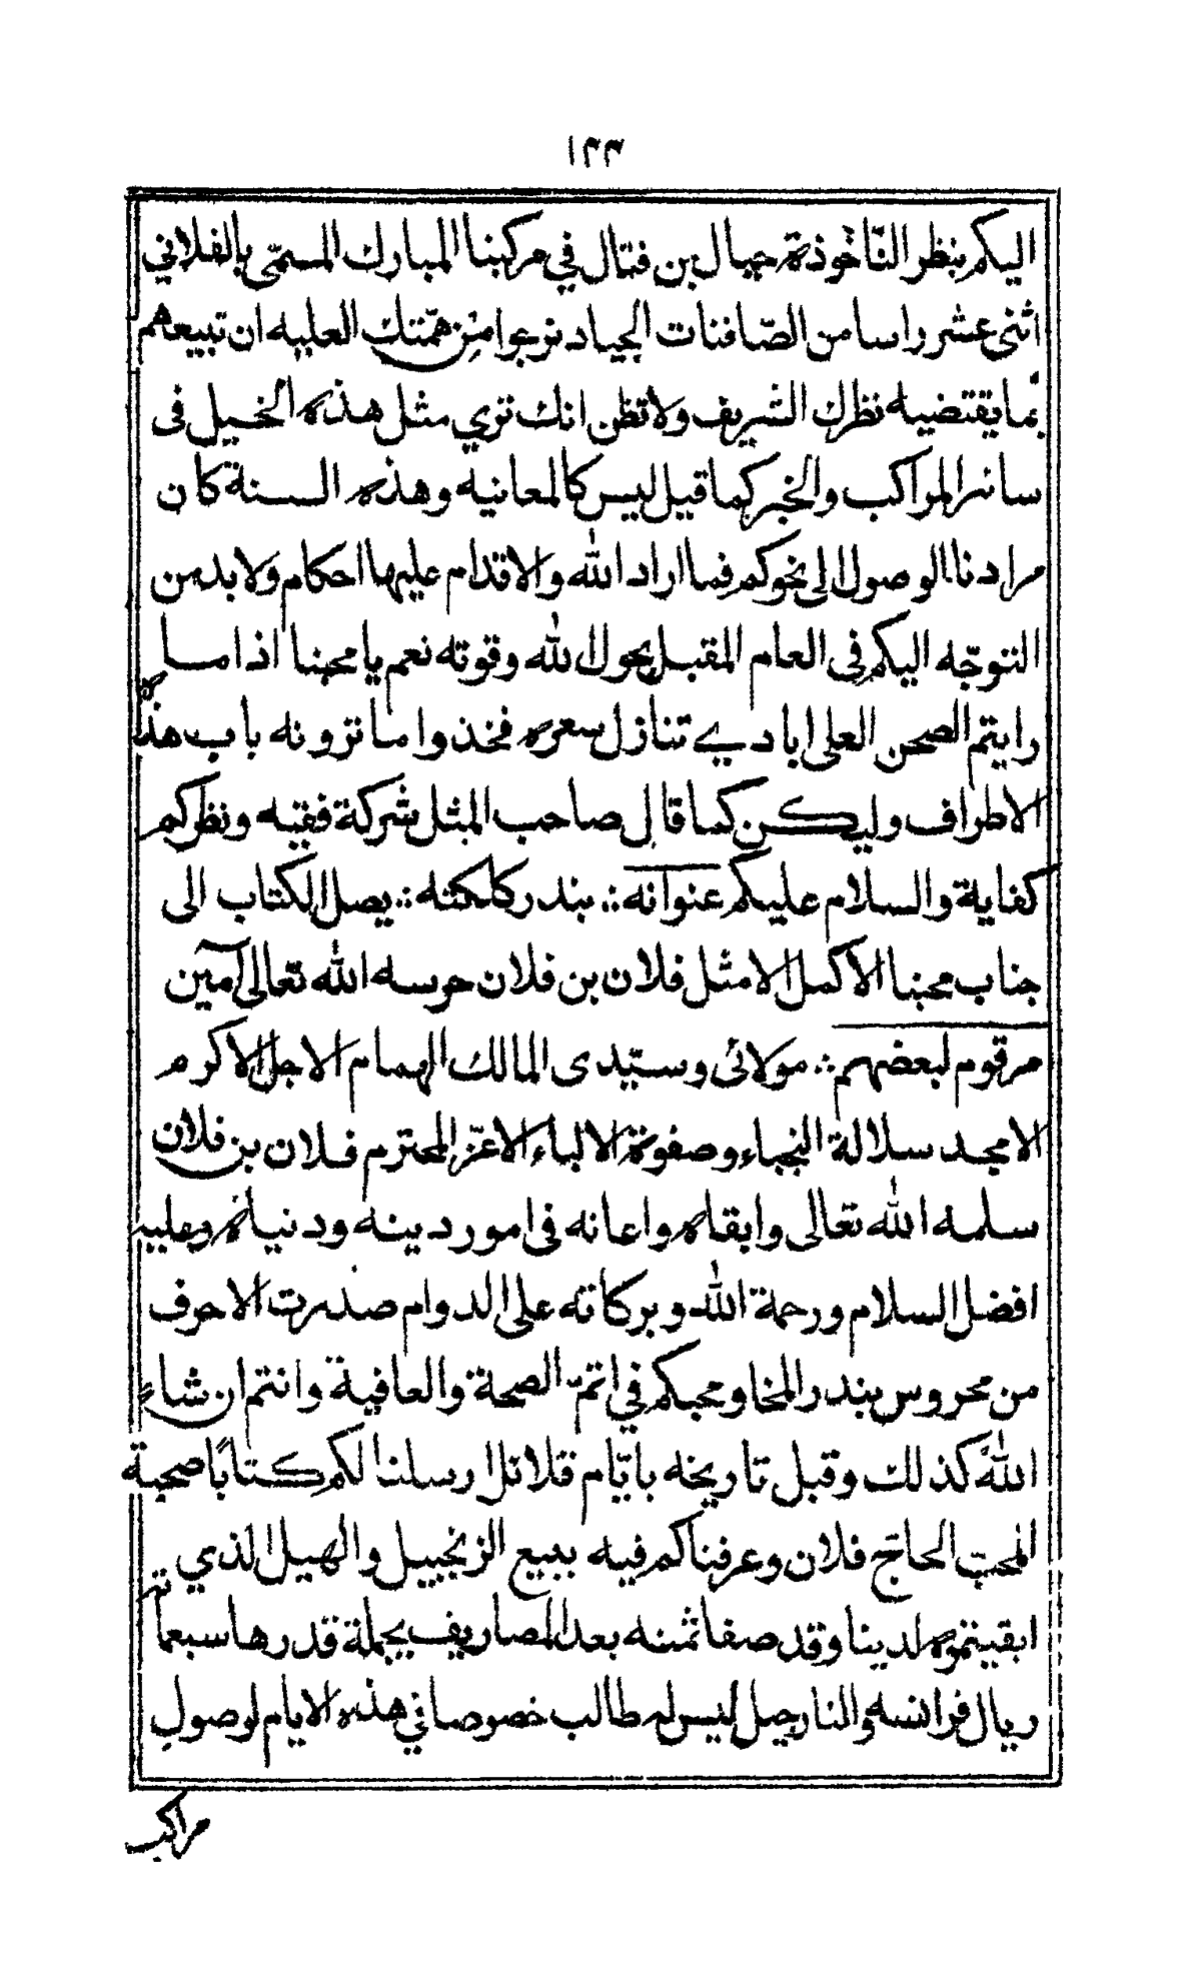 ١٣٣
اليكم بنظر النّاخوذة جيهال بن فتال في مركبنا المبارك المسمّى بالفلاني
اثنى عشر راسا من الصّافنات الجياد نرجوا من همّتك العليه ان تبيعهم
بما يقتضيه نظرك الشريف ولا تظن انك تري مثل هذه الخيل فى
سائر المراكب والخبر كما قيل ليس كالمعانيه وهذه السنة كان
مرادنا الوصول الى نحوكم فما اراد الله والاقدام عليها احكام ولا بد من
التوجّه اليكم فى العام المقبل بحول الله وقوته نعم يا محبنا اذا ما
رايتم الصحن العلى ابادي تنازل سعره فخذوا ما ترونه باب هذا
الاطراف وليكن كما قال صاحب المثل شركة فقيه ونظركم
كفاية والسلام عليكم عنوانه ؞ بندر كلكته ؞ يصل الكتاب الى
جناب محبنا الاكمل الامثل فلان بن فلان حرسه الله تعالى آمين
مرقوم لبعضهم ؞ مولائى وسيّدى المالك الهمام الاجل الاكرم
الامجد سلالة النجباء وصفوة الالباء الاعزّ المحترم فلان بن فلان
سلمه الله تعالى وابقاه واعانه فى امور دينه ودنياه وعليه
افضل السلام ورحمة الله وبركاته على الدوام صدرت الاحرف
من محروس بندر المخا ومحبكم في اتم الصحة والعافية وانتم ان شاء
الله كذلك وقبل تاريخه بايّام قلائل ارسلنا لكم كتابًا صحبة
المحبّ الحاجّ فلان وعرفناكم فيه ببيع الزنجبيل والهيل الذي
ابقيتموه لدينا وقد صفا ثمنه بعد المصاريف بجملة قدرها سبعمائة
ريال فرانسه والنارجيل ليس له طالب خصوصا في هذه الايام لوصول
مراكب